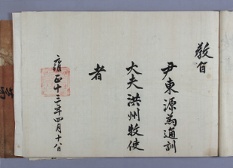 敎旨
尹東源爲通訓
大夫洪州牧使
者
雍正十三年四月十八日